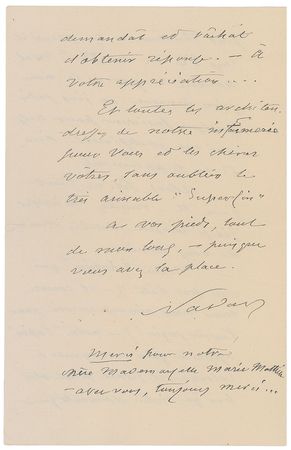 demandât et tâchât
d'obtenir réponse. — À
votre appréciation....
Et toutes les architen-
dresses de notre infirmerie
pour vous et les chers
vôtres, sans oublier le
très aimable "Superfin"
à vos pieds, tout
de mon long, — puisque
vous avez la place.
Nadar
Merci pour notre
chère Mademoiselle Marie
— avec vous, toujours merci...